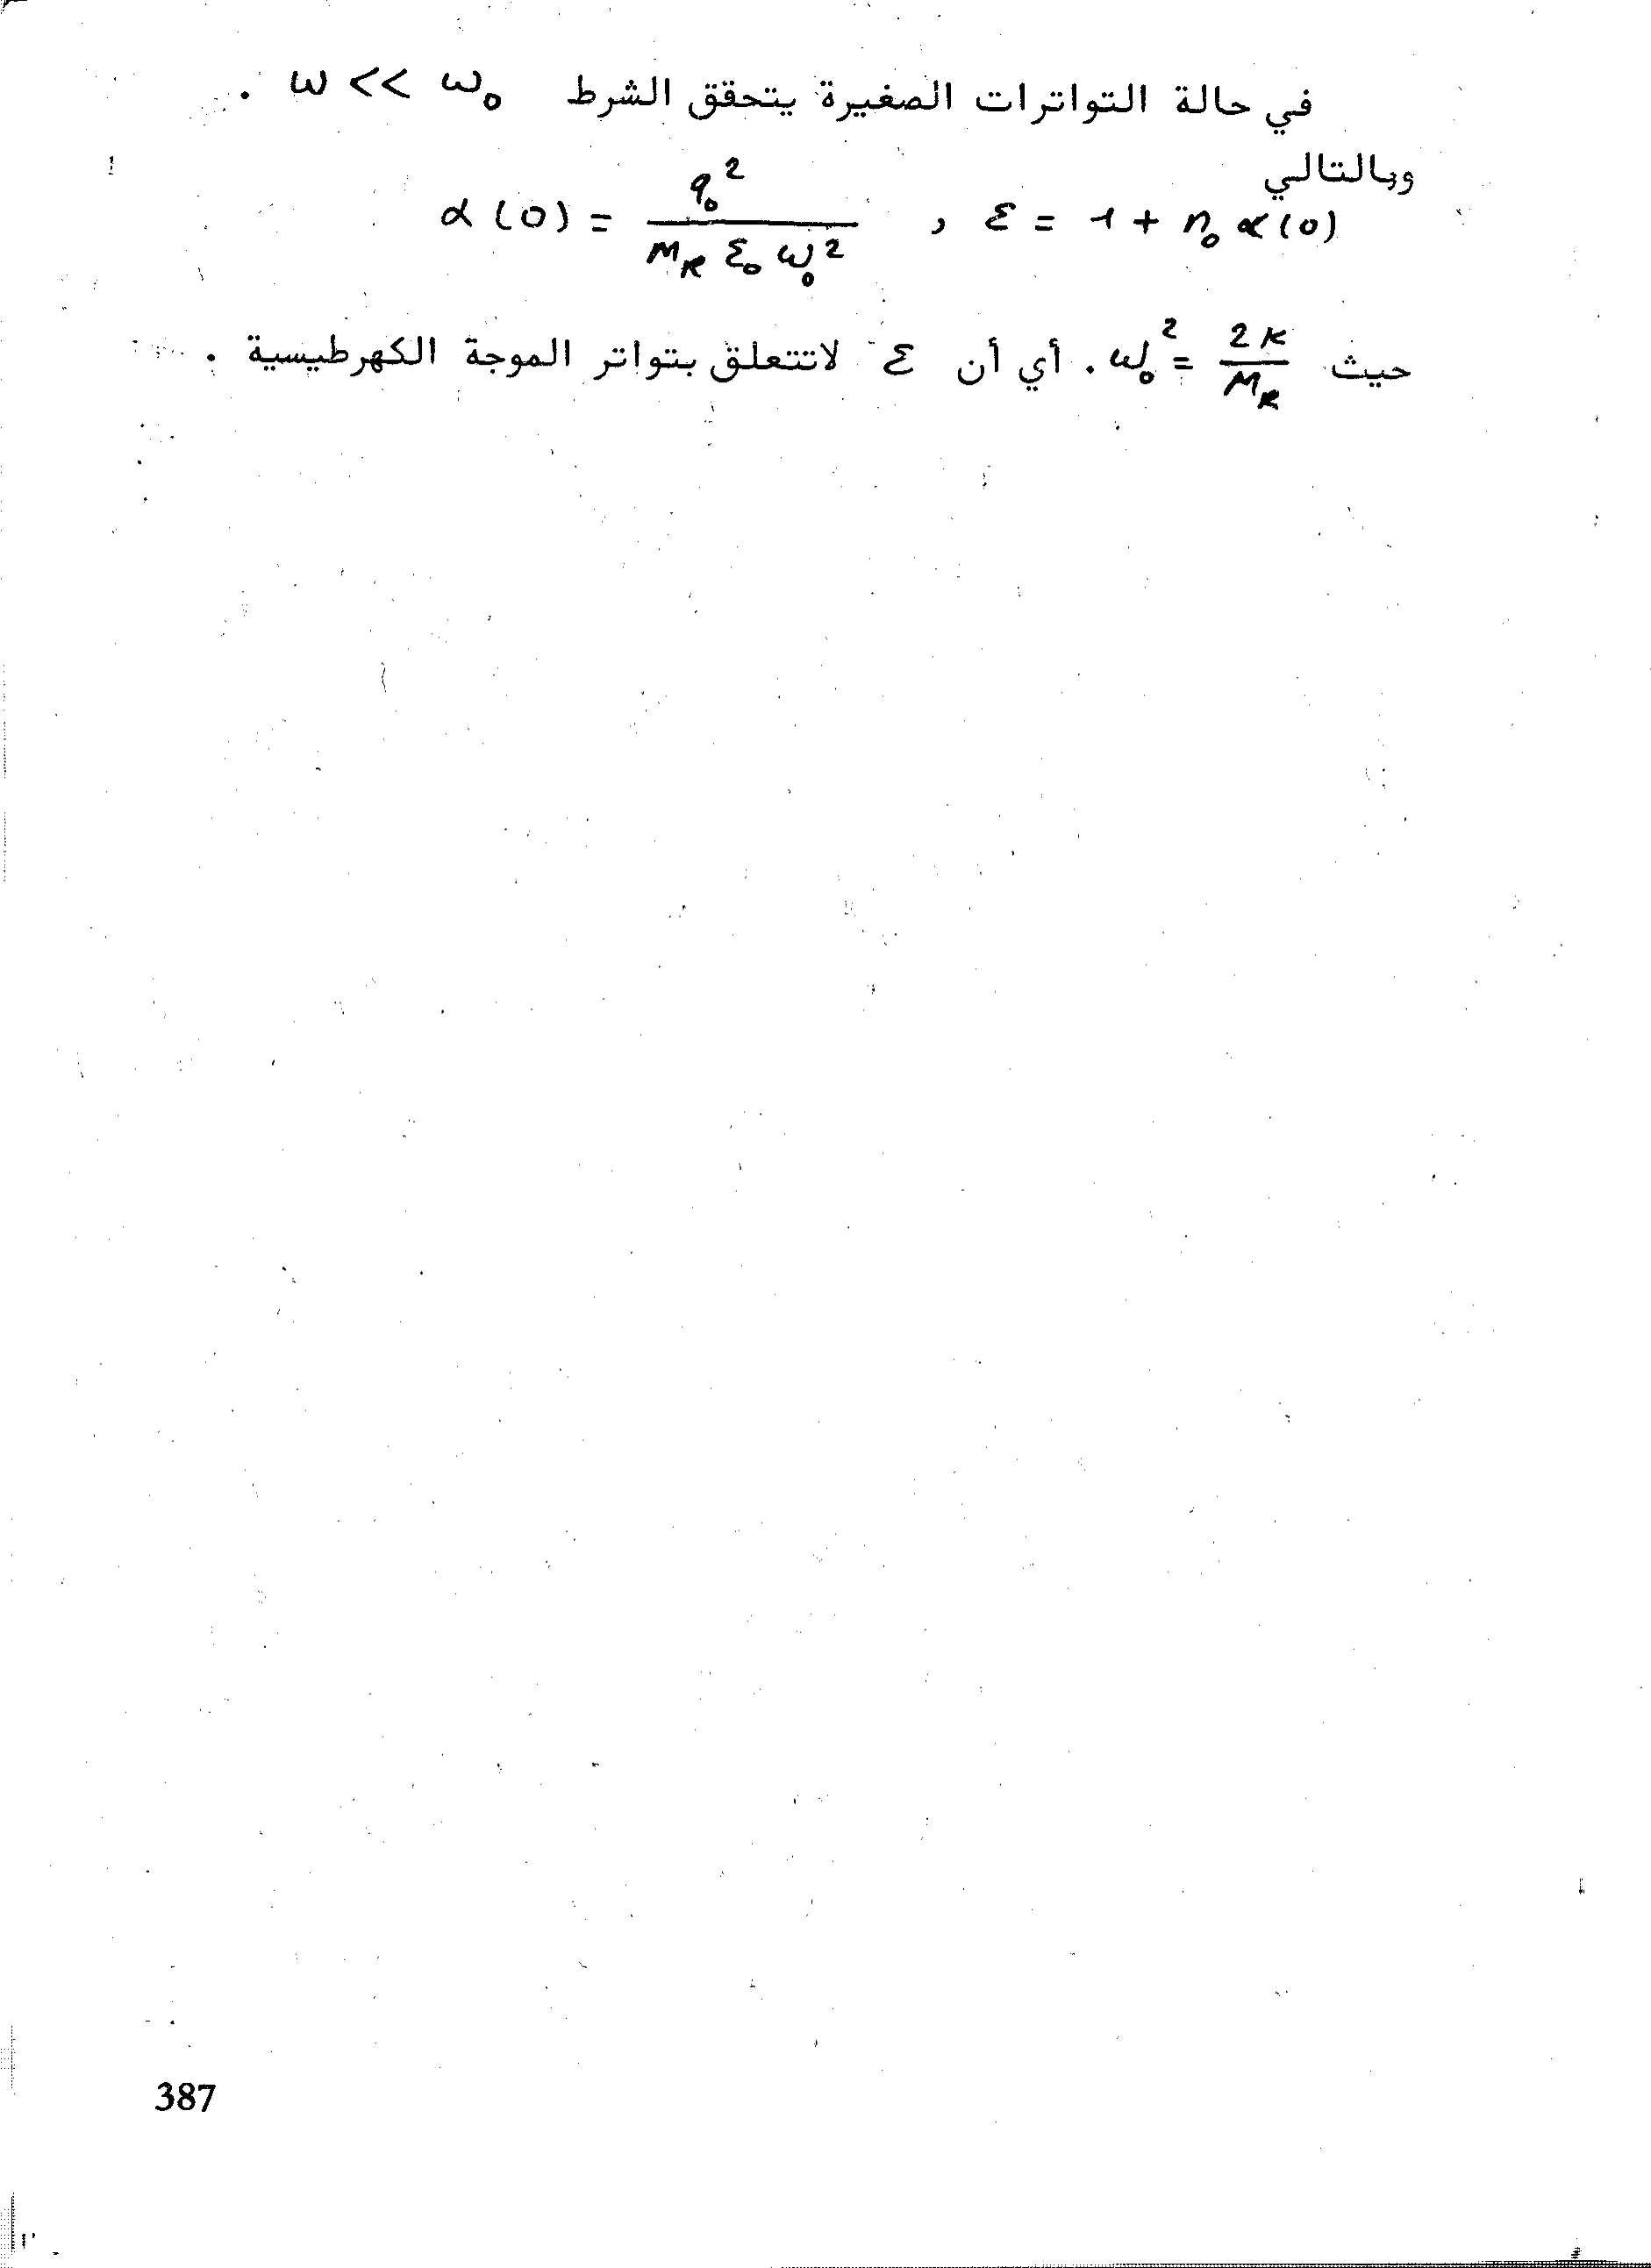 في حالة التواترات الصغيرة يتحقق الشرط ω << ω₀ .
وبالتالي
α(0) = q₀² / (M_R ε₀ ω₀²) , ε = 1 + n₀ α(0)
حيث ω₀² = 2K / M_R . أي أن ε لاتتعلق بتواتر الموجة الكهرطيسية .
387